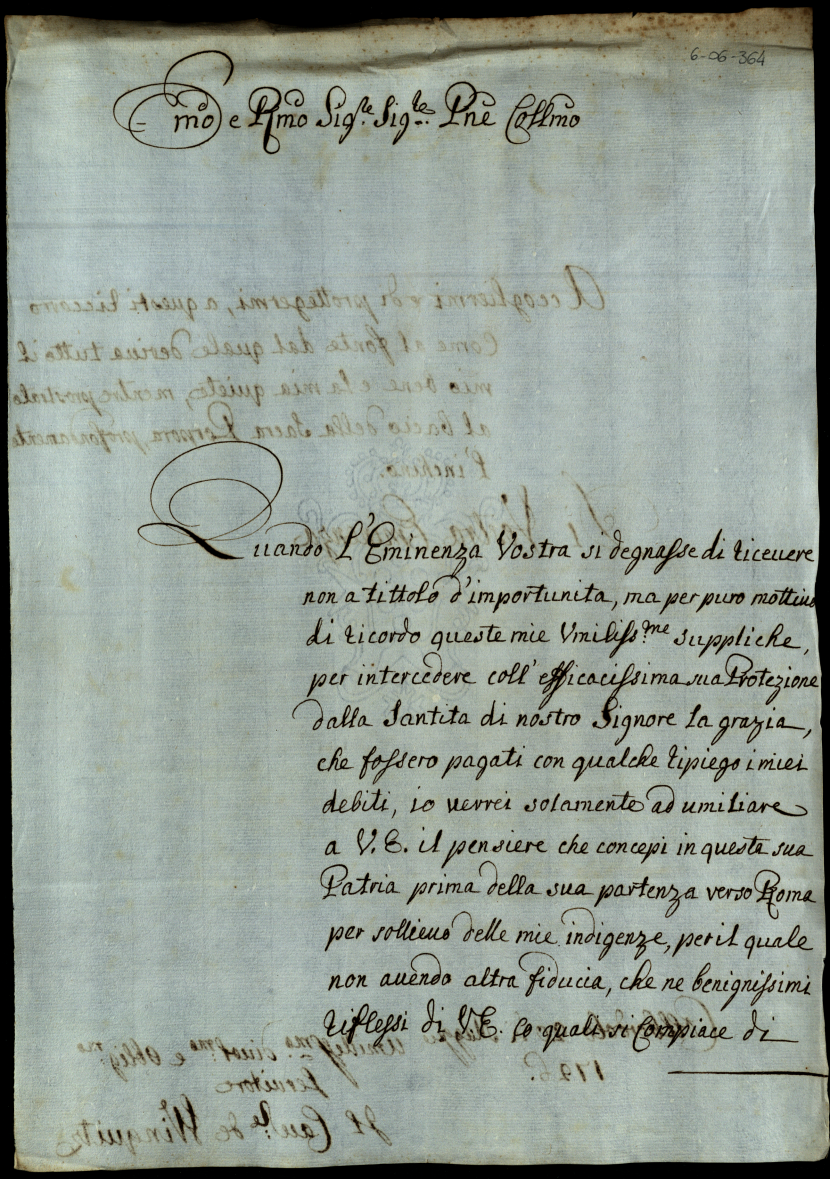 6-06-364
Emo e Rmo Sigre. Sigre. Pne Collmo
Quando l'Eminenza Vostra si degnasse di riceuere
non a tittolo d'importunita, ma per puro mottiuo
di ricordo queste mie Vmiliss.me suppliche,
per intercedere coll'efficacissima sua Protezione
dalla Santita di nostro Signore la grazia,
che fossero pagati con qualche ripiego i miei
debiti, io verrei solamente ad umiliare
a V.E. il pensiere che concepi in questa sua
Patria prima della sua partenza verso Roma
per sollieuo delle mie indigenze, per il quale
non auendo altra fiducia, che ne benignissimi
riflessi di V.E. co quali si compiace di
Accogliermi e di prottegermi, a questi riccorro
Come al fonte dal quale deriua tutto il
mio bene e la mia quiete, mentre prostrato
al bacio della Sacra Porpora profondamente
l'inchino.
Di Vostra
1726.
Seruitore
Il Caure. de